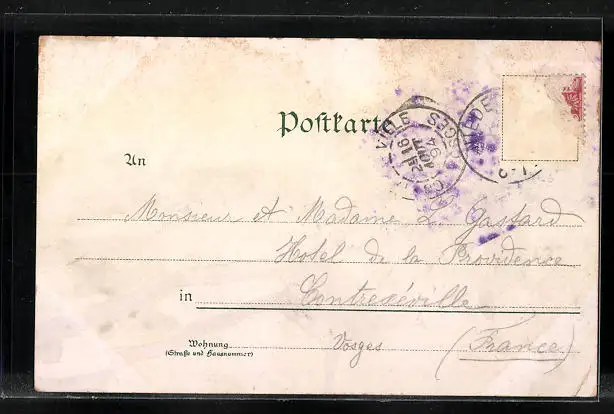 Postkarte
An
Monsieur et Madame L. Gastard
Hotel de la Providence
in Contrexéville
Wohnung
(Straße und Hausnummer)
Vosges (France)
VILLE
VOSGES
AOUT